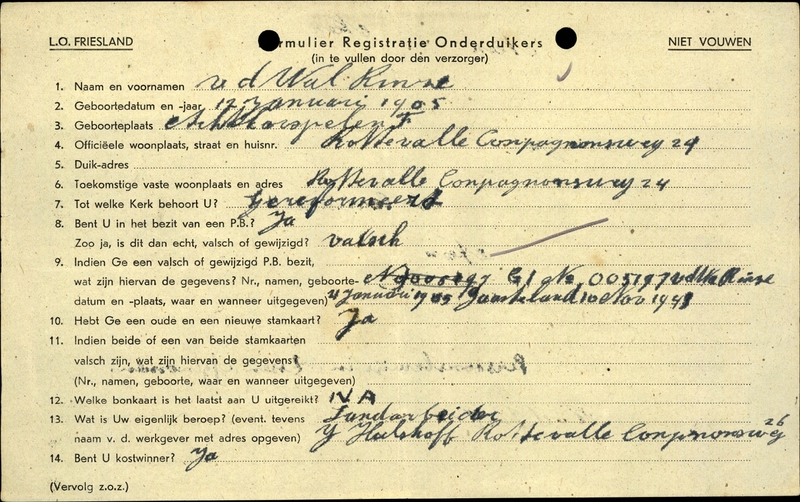 L.O. FRIESLAND Formulier Registratie Onderduikers NIET VOUWEN
(in te vullen door dén verzorger)
1. Naam en voornamen v d Wal Rinse
2. Geboortedatum en -jaar 12 Januari 1905
3. Geboorteplaats Achtkarspelen F
4. Officiëele woonplaats, straat en huisnr. Rottevalle Conpagnonsweg 24
5. Duik-adres
6. Toekomstige vaste woonplaats en adres Rottevalle Conpagnonsweg 24
7. Tot welke Kerk behoort U? Gereformeerd
8. Bent U in het bezit van een P.B.? Ja
Zoo ja, is dit dan echt, valsch of gewijzigd? valsch
9. Indien Ge een valsch of gewijzigd P.B. bezit,
wat zijn hiervan de gegevens? Nr., namen, geboorte- C I No. 005197 vd Wal Rinse
datum en -plaats, waar en wanneer uitgegeven) Januari 1905 Gaasterland 10 Nov 1943
10. Hebt Ge een oude en een nieuwe stamkaart? Ja
11. Indien beide of een van beide stamkaarten
valsch zijn, wat zijn hiervan de gegevens?
(Nr., namen, geboorte, waar en wanneer uitgegeven)
12. Welke bonkaart is het laatst aan U uitgereikt? IVA
13. Wat is Uw eigenlijk beroep? (event. tevens Landarbeider
naam v. d. werkgever met adres opgeven) Y Hulshoff Rottevalle 26
14. Bent U kostwinner? Ja
(Vervolg z.o.z.)